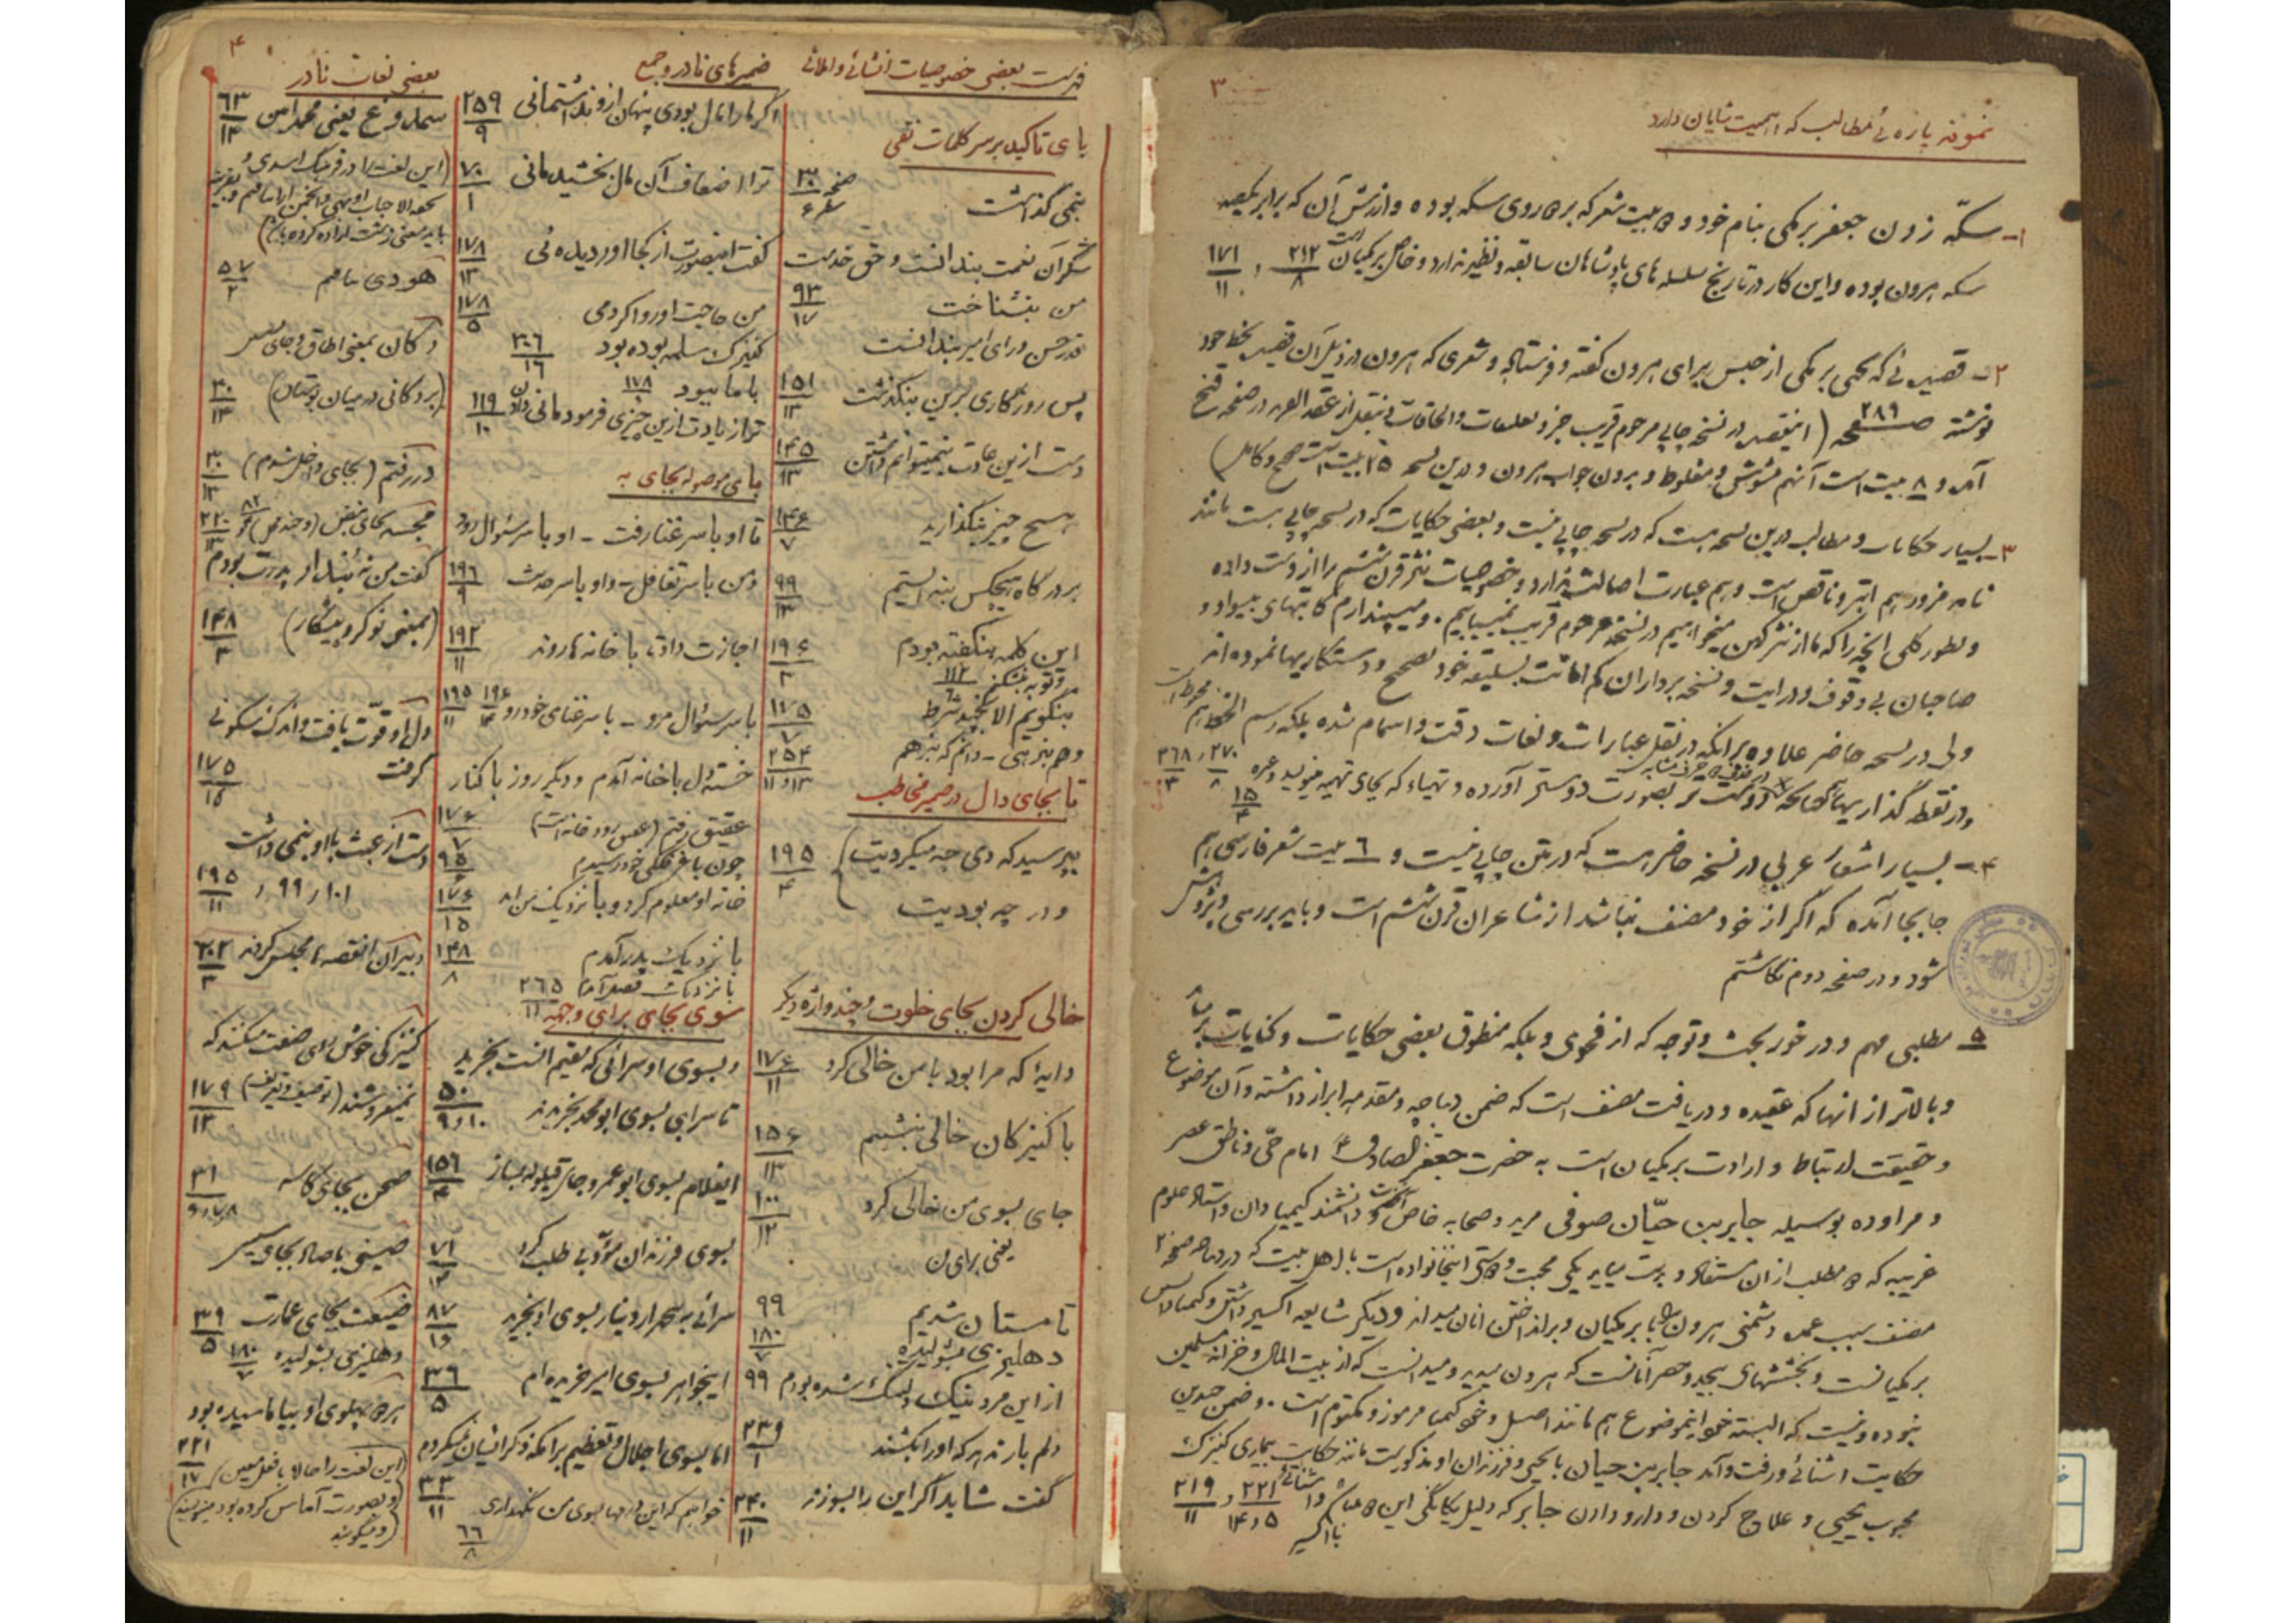 ۳
نمونه پاره ئی مطالب که اهمیت شایان دارد
۱- سکّه زدن جعفر برمکی بنام خود و ۵ بیت شعر که بر ۵ روی سکّه بوده و ارزش آن که برابر یکصد
سکه هرون بوده و این کار در تاریخ سلسله های پادشاهان سابقه و نظیر ندارد و خاص برمکیان است ۲۱۲/۸ و ۱۷۱/۱۱
۲- قصیده ئی که یحیی برمکی از حبس برای هرون گفته و فرستاده و شعری که هرون در ذیل آن قصیده بخط خود
نوشته صفحه ۲۸۹ (اینقصیده در نسخه چاپی مرحوم قریب جزو تعلیقات و الحاقات بنقل از عقد الفرید در صفحه
آمده و ۸ بیت است آنهم مشوش و مغلوط و بدون جواب هرون و درین نسخه ۲۵ بیت است صحیح و کامل)
۳- بسیار حکایات و مطالب درین نسخه هست که در نسخه چاپی نیست و بعضی حکایات که در نسخه چاپی هست مانند
نامه مزور هم ابتر و ناقص است و هم عبارت اصالت ندارد و خصوصیات نثر قرن ششم را از دست داده
و بطور کلی آنچه را که ما از نثر کهن میخواهیم در نسخه مرحوم قریب نمییابیم. و میپندارم کاتبهای بیسواد و
صاحبان بی وقوف و درایت و نسخه برداران کم امانت بسلیقه خود تصحیح و دستکاریها نموده اند
ولی در نسخه حاضر علاوه بر آنکه در نقل عبارات و لغات دقت و اهتمام شده بلکه رسم الخط هم محفوظ است
و در نقطه گذاریها بصورت دوستر آورده و تهیاء که بجای تهیه مینویسد و غیره ۲۷۰/۸ و ۲۶۸/۳
۱۵/۴
۴- بسیار اشعار عربی در نسخه حاضر هست که در متن چاپی نیست و ۶ بیت شعر فارسی هم
جابجا آمده که اگر از خود مصنف نباشد از شاعران قرن ششم است و باید بررسی و پژوهش
شود و در صفحه دوم نگاشتم
۵ مطلبی مهم و در خور بحث و توجه که از فحوی و بلکه منطوق بعضی حکایات و کنایات برمیآید
و بالاتر از آنها که عقیده و دریافت مصنف است که ضمن دیباچه و مقدمه ابراز داشته و آن موضوع
و حقیقت ارتباط و ارادت برمکیان است به حضرت جعفر الصادق ع امام حیّ و ناطق عصر
و مراوده بوسیله جابر بن حیّان صوفی مرید و صحابه خاص آنحضرت و دانشمند کیمیا دان و استاد علوم
غریبه که ۵ مطلب از آن مستفاد و بدست میآید یکی محبت و دوستی اینخانواده است با اهل بیت که در دیباچه صفحه ۲
مصنف سبب عمده دشمنی هرون را با برمکیان و برانداختن آنان میداند و دیگر شایعه اکسیر داشتن و کیمیا دانستن
برمکیانست و بخششهای بیحد و حصر آنانست که هرون میدید و میدانست که از بیت المال و خزانه مسلمین
نبوده و نیست که البته خود اینموضوع هم مانند اصل وجود کیمیا مرموز و مکتوم است. و ضمن چندین
حکایت اشنائی و رفت و آمد جابر بن حیان با یحیی و فرزندان او مذکورست مانند حکایت بیماری کنیزک
محبوب یحیی و علاج کردن و دارو دادن جابر که دلیل یگانگی این ۲۲۱/۵و۱۴ و ۲۱۹/۱۱
با اکسیر
۴
فهرست بعضی خصوصیات انشائی و املائی
بای تاکید بر سر کلمات نفی
بنمی گذاشت صفحه ۳۰ سطر ۶
شکر آن نعمت بندانست و حق خدمت
من بنشناخت ۹۳/۱۷
قدر حسن و رای امیر بندانست
پس روزگاری برین بنگذشت ۱۵۱/۱۲
دست ازین عادت بنمیتوانم داشتن ۱۴۵/۱۳
هیچ چیز بنگذارید ۱۴۶/۷
بر درگاه هیچکس بنه ایستم ۹۹/۱۳
این کلمه بنگفته بودم ۱۹۶/۲
بنگویم الا بچند شرط ۱۷۵/۷
و هم بنرهی - دانم که بنرهم ۲۵۴/۱۲و۱۱
تا بجای دال در ضمیر مخاطب
بپرسید که دی چه میکردیت) ۱۹۵/۴
و در چه بودیت
خالی کردن بجای خلوت و چند واژه دیگر
دایهٔ که مرا بود با من خالی کرد ۱۷۶/۱۱
با کنیزکان خالی بنشینم ۱۵۶/۱۳
جای بسوی من خالی کرد ۱۰۰/۱۲
یعنی برای من
تا مستان شدیم ۹۹
دهلیزی بشولیده ۱۸۰/۷
از این مرد نیک دلتنگ شده بودم ۹۹
دلم بار ندهد که او را بکشند ۲۳۹/۱
گفت شاید اگر این را بسوزند ۲۴۰/۱۱
ضمیرهای نادر و جمع
اگر ما را مال بودی پنهان از و نداشتمانی ۲۵۹/۹
ترا اضعاف آن مال بخشیدمانی ۷۰/۱
گفت اینصورت از کجا اوردیده ئی ۱۷۸/۱۳
من حاجت او روا کردمی ۱۷۸/۵
کنیزک مسلمه بوده بود ۲۰۶/۱۶
با ما ببود ۱۷۸
ترا زیادت ازین چیزی فرمودمانی دادن ۱۱۹/۱۰
بای موصوله بجای به
تا او با سر غنا رفت - او با سر سئوال رود
و من با سر تغافل - و او با سر حدیث ۱۹۶/۹
اجازت داد، تا با خانه ها روند ۱۹۲/۱۱
با سر سئوال مرو - با سر غنای خود رو ۱۹۶/۴ ۱۹۵/۱۱
خسته دل با خانه آمدم و دیگر روز با کنار
عقیق رفتم (عقیق رودخانه است) ۱۷۶/۷
چون با غرفگی خود رسیدم ۹۵
خانه او معلوم کرد و با نزدیک من آمد ۱۷۶/۱۵
با نزدیک پدر آمدم ۱۴۸/۸
با نزدیک قصر آمد ۲۶۵/۱۱
سوی بجای برای و جهه
و بسوی او سرائی که بقیم الست بخرید
تا سرایی بسوی ابو محمد بخریدند ۵۰/۱۰و۹
اینغلام بسوی ابو عمرو جای قیلوله بساز ۱۵۹/۴
بسوی فرزندان مؤدبی طلب کرد ۷۱/۱۲
سرائی به چهار دینار بسوی او بخرید ۸۷/۱۰
اینجواهر بسوی امیر خریده ام ۳۶/۵
اما بسوی اجلال و تعظیم برامکه ذکر ایشان میکردم
خواهم که این درمها بسوی من نگهداری ۳۳/۱۱
۶۶/۸
بعضی لغات نادر
سمارغ یعنی محمد امین ۶۳/۱۳
(این لغت را در فرهنگ اسدی و
تحفه الاحباب اوبهی و انجمن آرا نیافتم و بقرینه
باید معنی زشت اراده کرده باشد)
هودی ۵۷/۲
دکان بمعنی اطاق و جای
(بر دکانی در میان بوستان) ۳۰/۱۳
در رفتم (بجای داخل شدم) ۳۰/۱۳
گفت من نه بندار پدرت بودم
(بمعنی نوکر و پیشکار) ۱۴۸/۳
دل او قوّت یافت و اندک سکونی
گرفت ۱۷۵/۱۵
دست از عبث با او بنمی داشت
۱۰۱ و ۹۹ و ۱۹۵/۱۱
دبیران انقصه مجلس کردند ۲۰۲/۲
کنیزکی خوش روی صفت میکنند که
میفروشند (توصیف و تعریف) ۱۷۹/۱۲
صحن بجای کاسه ۳۱
صینی با صاد بجای سینی
ضیعت بجای عمارت ۳۹/۵
دهلیزی بشولیده ۱۸۰/۷
هر ۵ پهلوی او بیاماسیده بود
۲۲۱/۱۷ (این لغت را حالا با فعل معین
و بصورت آماس کرده بود مینویسند
و میگویند)